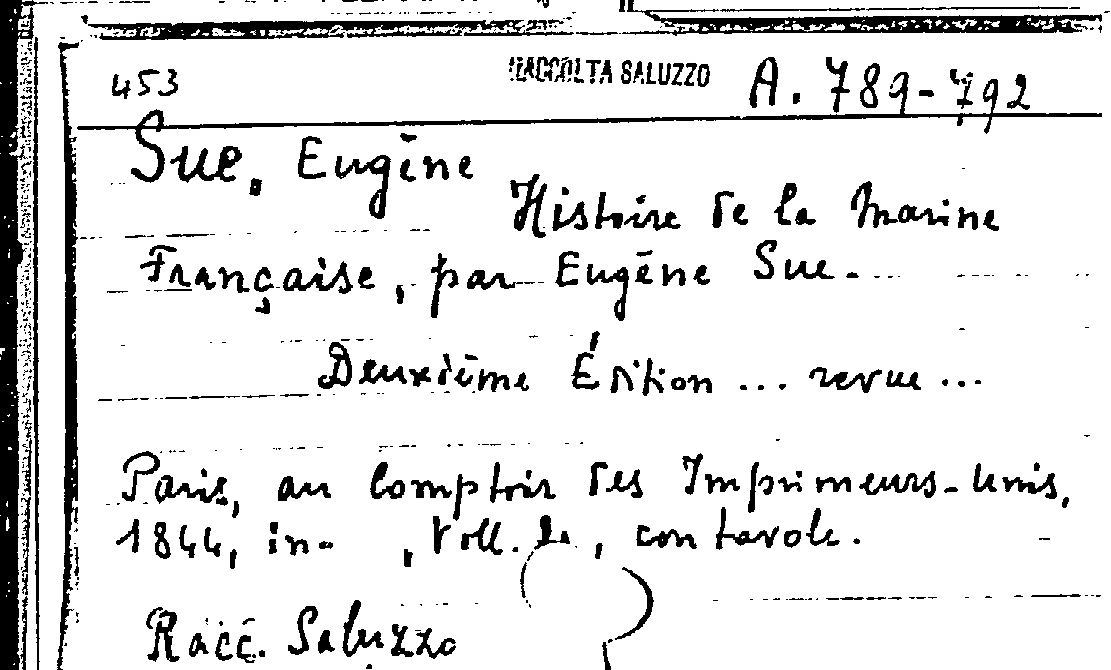 453 RACCOLTA SALUZZO A. 789-792
Sue, Eugène
Histoire de la Marine
Française, par Eugène Sue.
Deuxième Édition ... revue ...
Paris, au Comptoir des Imprimeurs-Unis,
1844, in- , Voll. , con tavole.
Racc. Saluzzo